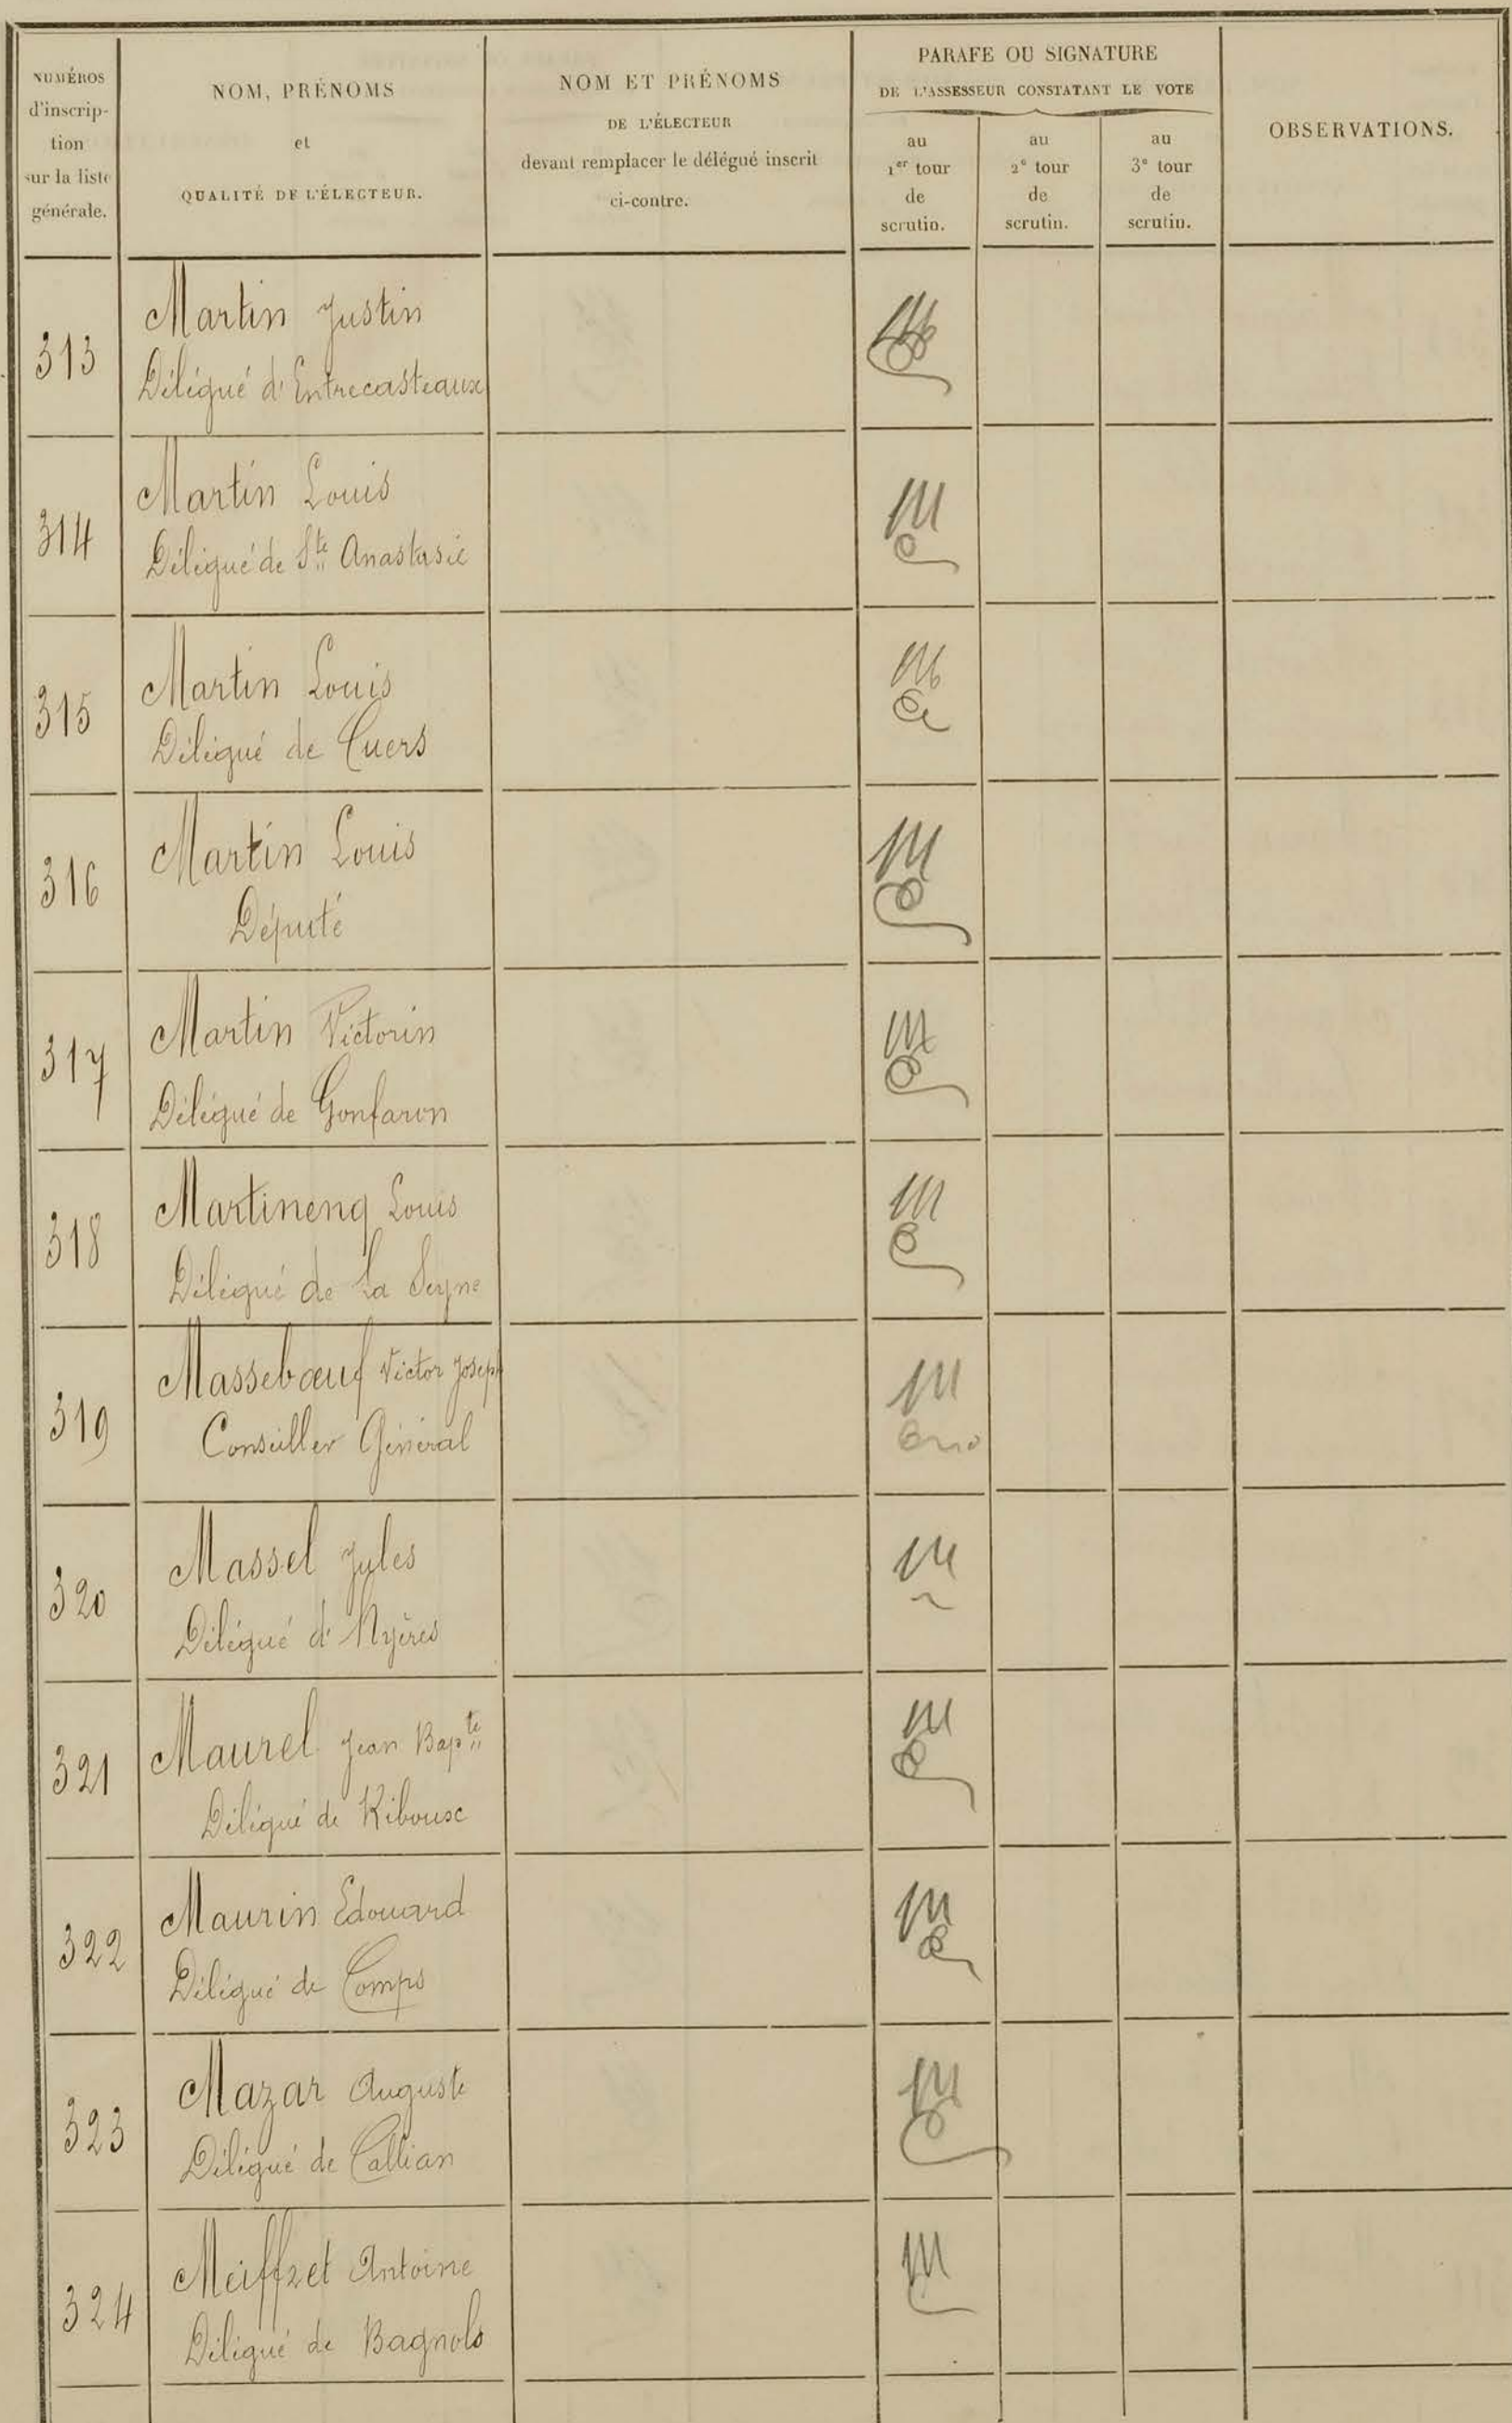 NUMÉROS
d'inscrip-
tion
sur la liste
générale.
NOM, PRÉNOMS
et
QUALITÉ DE L'ÉLECTEUR.
NOM ET PRÉNOMS
DE L'ÉLECTEUR
devant remplacer le délégué inscrit
ci-contre.
PARAFE OU SIGNATURE
DE L'ASSESSEUR CONSTATANT LE VOTE
au
1er tour
de
scrutin.
au
2e tour
de
scrutin.
au
3e tour
de
scrutin.
OBSERVATIONS.
313
Martin Justin
Délégué d'Entrecasteaux
314
Martin Louis
Délégué de Ste Anastasie
315
Martin Louis
Délégué de Cuers
316
Martin Louis
Député
317
Martin Victorin
Délégué de Gonfaron
318
Martinenq Louis
Délégué de La Seyne
319
Massebœuf Victor Joseph
Conseiller Général
320
Massel Jules
Délégué d'Hyères
321
Maurel Jean Bapte
Délégué de Riboux
322
Maurin Edouard
Délégué de Comps
323
Mazar Auguste
Délégué de Callian
324
Meiffret Antoine
Délégué de Bagnols